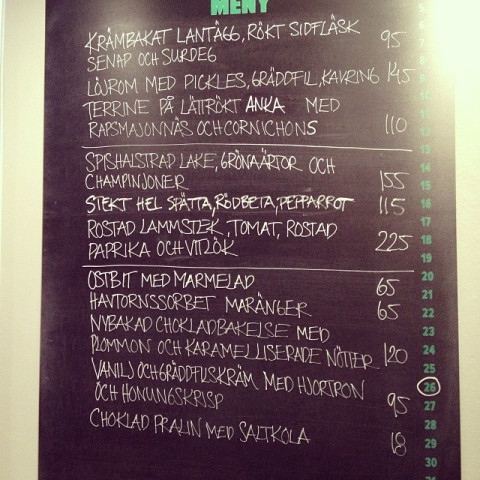 MENY
KRÄMBAKAT LANTÄGG, RÖKT SIDFLÄSK
SENAP OCH SURDEG 95
LÖJROM MED PICKLES, GRÄDDFIL, KAVRING 145
TERRINE PÅ LÄTTRÖKT ANKA MED
RAPSMAJONNÄS OCH CORNICHONS 110
SPISHALSTRAD LAKE, GRÖNA ÄRTOR OCH
CHAMPINJONER 155
STEKT HEL SPÄTTA, RÖDBETA, PEPPARROT 115
ROSTAD LAMMSTEK, TOMAT, ROSTAD
PAPRIKA OCH VITLÖK 225
OSTBIT MED MARMELAD 65
HAVTORNSSORBET MARÄNGER 65
NYBAKAD CHOKLADBAKELSE MED
PLOMMON OCH KARAMELLISERADE NÖTTER 120
VANILJ OCH GRÄDDFILSKRÄM MED HJORTRON
OCH HONUNGSKRISP 95
CHOKLAD PRALIN MED SALTKOLA 18
5
6
7
8
9
10
11
12
13
14
15
16
17
18
19
20
21
22
23
24
25
26
27
28
29
30
31